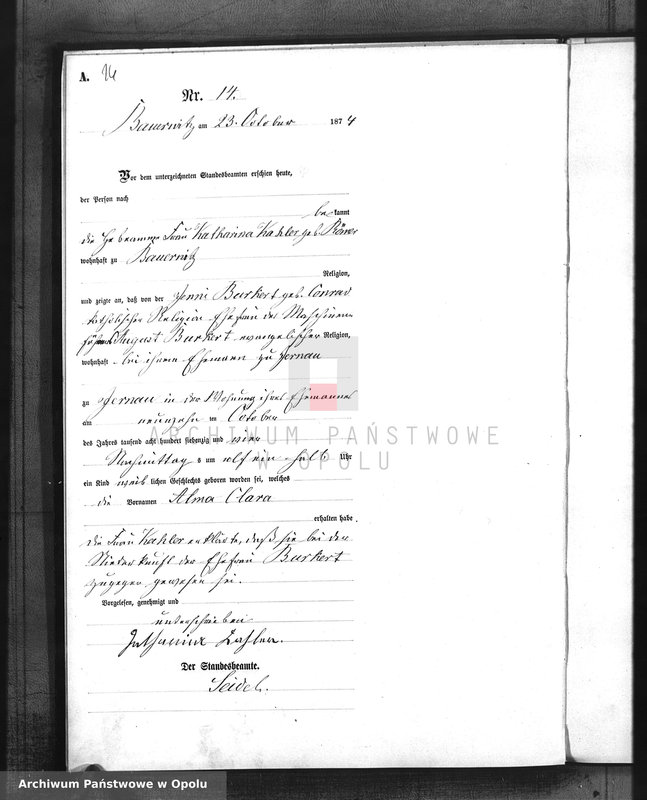 A. 14
Nr. 14.
Bauerwitz am 23. October 1874
Vor dem unterzeichneten Standesbeamten erschien heute,
der Person nach
be kannt
die Hebeamme Frau Katharina Kahler geb.
wohnhaft zu Bauerwitz
Religion,
und zeigte an, daß von der Jenni Burkert geb. Conrad
katholischer Religion Ehefrau des Maschinen
führers August Burkert evangelischer Religion,
wohnhaft bei ihrem Ehemann zu Jernau
zu Jernau in der Wohnung ihres Ehemannes
am neunzehn ten October
des Jahres tausend acht hundert siebenzig und vier
Nachmittag s um elf ein halb Uhr
ein Kind weib lichen Geschlechts geboren worden sei, welches
die Vornamen Alma Clara
erhalten habe.
Die Frau Kahler erklärte, daß sie bei der
Niederkunft der Ehefrau Burkert
zugegen gewesen sei.
Vorgelesen, genehmigt und
unterschrieben
Katharina Kahler.
Der Standesbeamte.
Seidel.
ARCHIWUM PAŃSTWOWE
W OPOLU
Archiwum Państwowe w Opolu